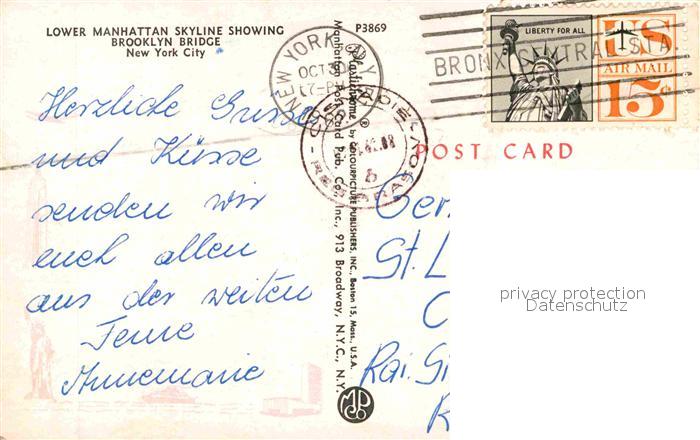 LOWER MANHATTAN SKYLINE SHOWING
BROOKLYN BRIDGE
New York City
P3869
NEW YORK, N.Y.
OCT 3
7-PM
LIBERTY FOR ALL
US
AIR MAIL
15¢
BRONX CENTRAL STA.
POST CARD
Herzliche Grüsse
und Küsse
senden wir
euch allen
aus der weiten
Ferne
Annemarie
Plastichrome® by COLOURPICTURE PUBLISHERS, INC., Boston 15, Mass., U.S.A.
Manhattan Post Card Pub. Co., Inc., 913 Broadway, N.Y.C., N.Y.
Ger
St. L
C
Rai. Si
privacy protection
Datenschutz